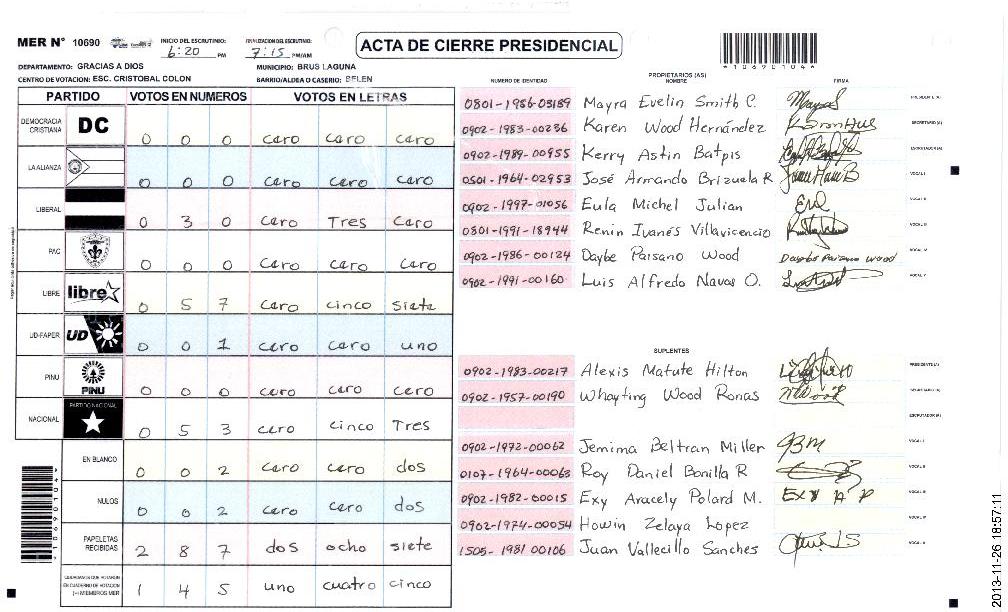 MER N° 10690 INICIO DEL ESCRUTINIO: 6:20 PM FINALIZACION DEL ESCRUTINIO: 7:15 PM/AM
ACTA DE CIERRE PRESIDENCIAL
*10690104*
DEPARTAMENTO: GRACIAS A DIOS MUNICIPIO: BRUS LAGUNA
CENTRO DE VOTACION: ESC. CRISTOBAL COLON BARRIO/ALDEA O CASERIO: BELEN
PARTIDO VOTOS EN NUMEROS VOTOS EN LETRAS
DEMOCRACIA CRISTIANA DC 0 0 0 caro caro caro
LA ALIANZA 0 0 0 caro caro caro
LIBERAL 0 3 0 caro Tres caro
PAC 0 0 0 caro caro caro
LIBRE libre 0 5 7 caro cinco siete
UD-FAPER UD 0 0 1 caro caro uno
PINU PINU 0 0 0 caro caro caro
NACIONAL PARTIDO NACIONAL 0 5 3 caro cinco Tres
EN BLANCO 0 0 2 caro caro dos
NULOS 0 0 2 caro caro dos
PAPELETAS RECIBIDAS 2 8 7 dos ocho siete
CIUDADANOS QUE VOTARON EN CUADERNO DE VOTACION (+) MIEMBROS MER 1 4 5 uno cuatro cinco
*10690104*
NUMERO DE IDENTIDAD PROPIETARIOS (AS) NOMBRE FIRMA
0801-1986-03189 Mayra Evelin Smith C. PRESIDENTE (A)
0902-1983-00236 Karen Wood Hernández SECRETARIO (A)
0902-1989-00955 Kerry Astin Batpis ESCRUTADOR (A)
0501-1964-02953 José Armando Brizuela R VOCAL I
0902-1997-01056 Eula Michel Julian VOCAL II
0801-1991-18944 Renin Ivanés Villavicencio VOCAL III
0902-1986-00124 Daybe Paisano Wood Daybe Paisano Wood VOCAL IV
0902-1991-00160 Luis Alfredo Navas O. VOCAL V
SUPLENTES
0902-1983-00217 Alexis Matute Hilton PRESIDENTE (A)
0902-1957-00190 Whayting Wood Ronas SECRETARIO (A)
ESCRUTADOR (A)
0902-1972-00062 Jemima Beltran Miller JBM VOCAL I
0107-1964-00063 Roy Daniel Bonilla R VOCAL II
0902-1982-00015 Exy Aracely Polard M. Exy A P VOCAL III
0902-1974-00054 Howin Zelaya Lopez VOCAL IV
1505-1981 00106 Juan Vallecillo Sanches VOCAL V
2013-11-26 18:57:11